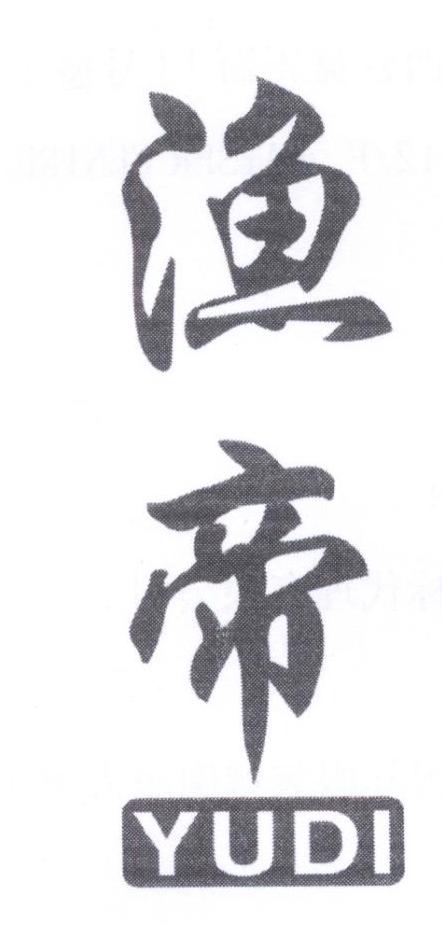 渔
帝
YUDI